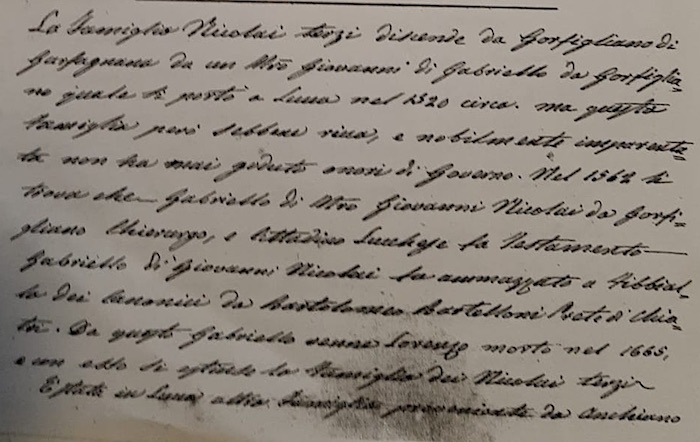 La Famiglia Nicolai terzi discende da Gorfigliano di
Garfagnana da un Mro Giovanni di Gabriello da Gorfiglia=
no quale si portò a Lucca nel 1520 circa. ma questa
famiglia però sebbene ricca, e nobilmente imparenta=
ta non ha mai goduto onori di Governo. Nel 1562 si
trova che Gabriello di Mro Giovanni Nicolai da Gorfi=
gliano Chirurgo, e Cittadino Lucchese fa Testamento
Gabriello di Giovanni Nicolai fu ammazzato a
lo dei Canonici da Bartolomeo Bartelloni Prete di Chia=
tri. Da questo Gabriello venne Lorenzo morto nel 1665,
e con esso si estinse la Famiglia dei Nicolai terzi
Esiste in Lucca altra Famiglia proveniente da Anchiano